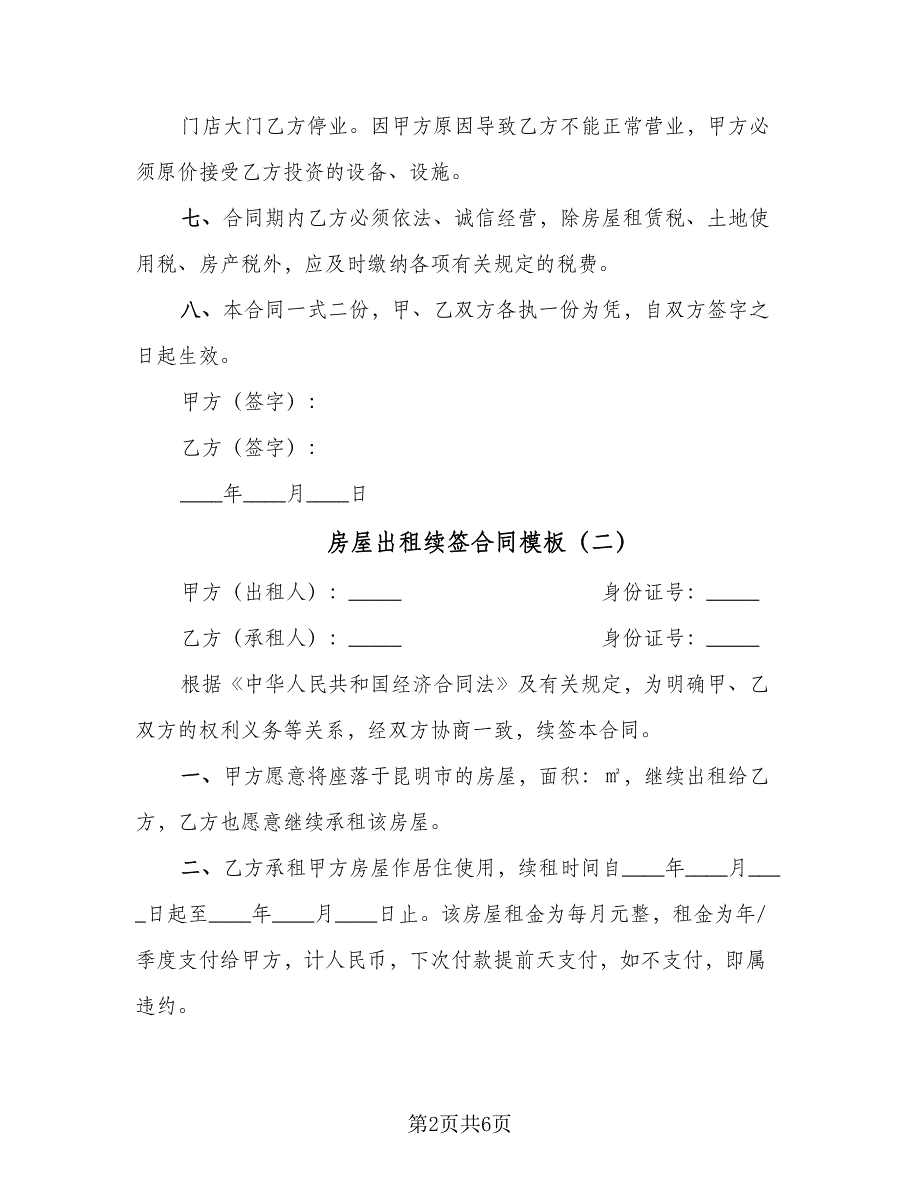 门店大门乙方停业。因甲方原因导致乙方不能正常营业，甲方必
须原价接受乙方投资的设备、设施。
七、合同期内乙方必须依法、诚信经营，除房屋租赁税、土地使
用税、房产税外，应及时缴纳各项有关规定的税费。
八、本合同一式二份，甲、乙双方各执一份为凭，自双方签字之
日起生效。
甲方（签字）：
乙方（签字）：
____年____月____日
房屋出租续签合同模板（二）
甲方（出租人）：_____ 身份证号：_____
乙方（承租人）：_____ 身份证号：_____
根据《中华人民共和国经济合同法》及有关规定，为明确甲、乙
双方的权利义务等关系，经双方协商一致，续签本合同。
一、甲方愿意将座落于昆明市的房屋，面积：㎡，继续出租给乙
方，乙方也愿意继续承租该房屋。
二、乙方承租甲方房屋作居住使用，续租时间自____年____月___
_日起至____年____月____日止。该房屋租金为每月元整，租金为年/
季度支付给甲方，计人民币，下次付款提前天支付，如不支付，即属
违约。
第2页共6页